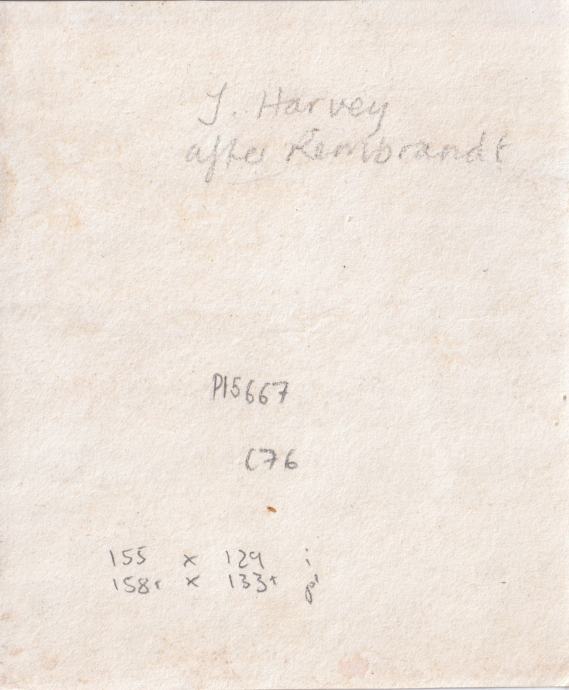 J. Harvey
after Rembrandt
P15667
C76
155 x 129 i
158+ x 133+ pl